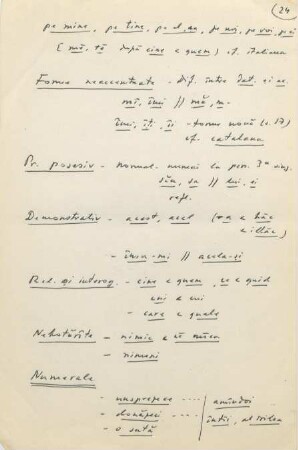 24
pe mine, pe tine, pe el, ea, pe noi, pe voi, pe ei
( mă, tă după cine < quem) cf. italiana
Forme neaccentuate - dif. între Dat. și Ac.
mi, îmi // mă, m-
îmi, îți, îi - forme nouă (s. 17)
cf. catalana
Pr. posesiv - normal. numai la pers. 3ª sing.
său, sa // lui, ei
refl.
Demonstrativ - acest, acel (eca < hăc
< illăc)
- însu-mi // acela-și
Rel. și interog - cine < quem, ce < quid
cui < cui
- care < quale
Nehotărîte - nimic <
- nimeni
Numerale
- unsprezece ---- amîndoi
- douăzeci ---- întîi, al treilea
- o sută